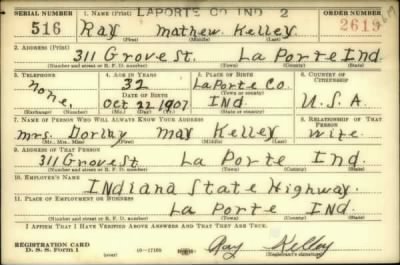 SERIAL NUMBER 1. NAME (Print) LAPORTE CO IND 2 ORDER NUMBER
516 Ray Mathew. Kelley. 2619
(First) (Middle) (Last)
2. ADDRESS (Print)
311 Grove St. La Porte Ind.
(Number and street or R. F. D. number) (Town) (County) (State)
3. TELEPHONE 4. AGE IN YEARS 5. PLACE OF BIRTH 6. COUNTRY OF CITIZENSHIP
none. 32 LaPorte Co.
DATE OF BIRTH (Town or county)
Oct 22 1907 Ind. U.S.A.
(Exchange) (Number) (Mo.) (Day) (Yr.) (State or country)
7. NAME OF PERSON WHO WILL ALWAYS KNOW YOUR ADDRESS 8. RELATIONSHIP OF THAT PERSON
mrs. Dorthy may Kelley wife.
(Mr., Mrs., Miss) (First) (Middle) (Last)
9. ADDRESS OF THAT PERSON
311 Grove St La Porte Ind.
(Number and street or R. F. D. number) (Town) (County) (State)
10. EMPLOYER'S NAME
Indiana State Highway.
11. PLACE OF EMPLOYMENT OR BUSINESS
La Porte Ind
(Number and street or R. F. D. number) (Town) (County) (State)
I AFFIRM THAT I HAVE VERIFIED ABOVE ANSWERS AND THAT THEY ARE TRUE.
REGISTRATION CARD
D. S. S. Form 1 Ray Kelley
(Registrant's signature)